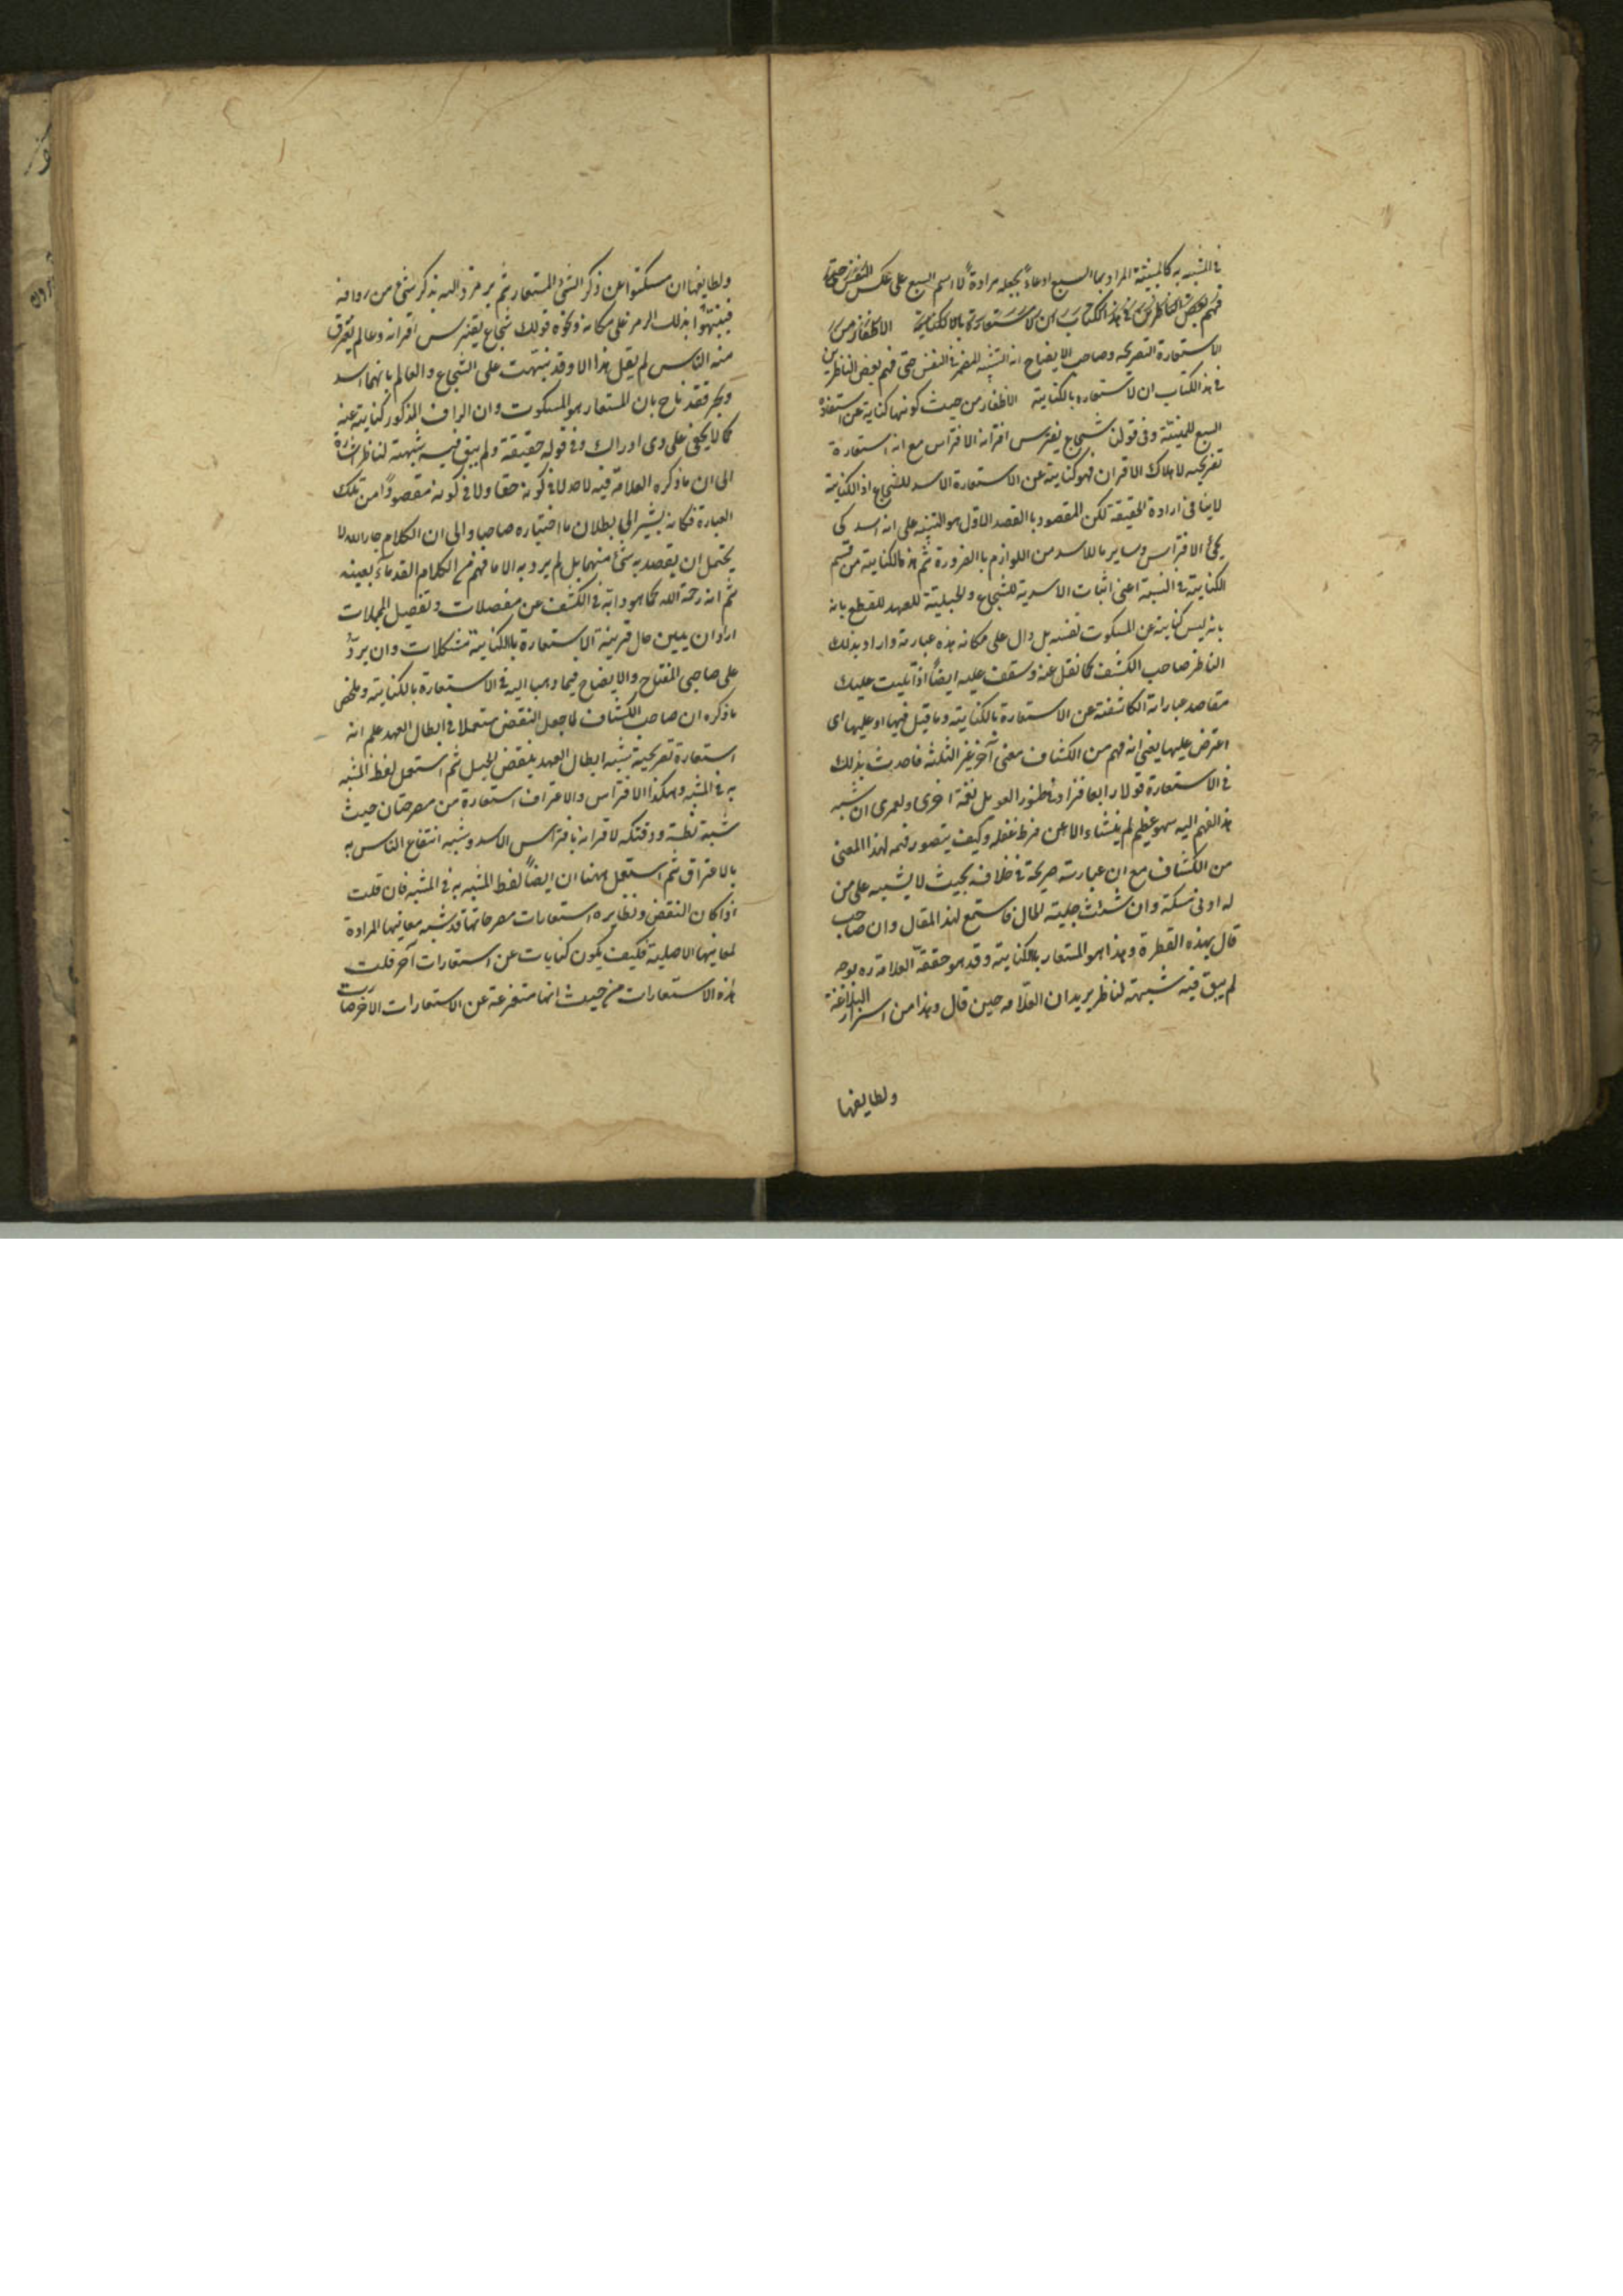 في المشبه به كالمنية المراد بها السبع ادعاء بجعله مرادة لا اسم السبع على عكس
فهم بعض الناظرين في هذا الكتاب ان الاستعارة بالكناية الاظفار من
الاستعارة التصريحه وصاحب الايضاح انه التشبيه المضمر في النفس حتى فهم بعض الناظرين
في هذا الكتاب ان الاستعاره بالكناية الاظفار من حيث كونها كناية عن استعارة
السبع للمنية وفي قولن شجاع يفترس اقرانه الافتراس مع انه استعارة
تصريحيه لاهلاك الاقران فهو كناية عن الاستعارة الاسد للشجاع اذ الكناية
لاينافى ارادة الحقيقة لكن المقصود باالقصد الاول هو التنبيه على انه اسد كى
يجئ الافتراس وساير ما للاسد من اللوازم باالضرورة ثم هذ الكناية من قسم
الكناية في النسبة اعنى اثبات الاسدية للشجاع والحبلية للعهد للقطع بانه
بانه ليس كناية عن المسكوت نفسه بل دال على مكانه هذه عبارته واراد بذلك
الناظر صاحب الكشف كما نقل عنه وستقف عليه ايضاً اذا تليت عليك
مقاصد عباراته الكاشفة عن الاستعارة بالكناية وما قيل فيها او عليها اى
اعترض عليها يعنى انه فهم من الكشاف معنى آخر غير الثلثة فاحدث بذلك
في الاستعارة قولا رابعا فزاد في طنبور العويل نغمة اخرى ولعمرى ان نسبه
هذا الفهم اليه سهو عظيم لم ينشاء الا عن فرط غفله وكيف يتصور فهمه لهذا المعنى
من الكشاف مع ان عبارته صريحة في خلافه بحيث لا يشتبه على من
له ادنى مسكة وان شئت جلية الحال فاستمع لهذا المقال وان صاحب
قال بهذه القطرة وهذا هو المستعار بالكناية وقد هو حققه العلامة ره بوجه
لم يبق فيه شبهة لناظر يريد ان العلامه حين قال وهذا من اسرار البلاغة
ولطايفها
ولطايفها ان يسكتوا عن ذكر الشئ المستعار ثم يرمزوا اليه بذكر شئ من روادفه
فينبهوا بذلك الرمز على مكانه ونحوه قولك شجاع يفترس اقرانه وعالم يغترف
منه الناس لم يقل هذا الا وقد نبهت على الشجاع والعالم بانهما اسد
وبحر فقد ناح بان المستعار هو المسكوت وان الرادف المذكور كناية عنه
كما لا يخفى على ذوى ادراك وفي قوله حقيقة ولم يبق فيه شبهة لناظر اشارة
الى ان ما ذكره العلامة فيه لاحد لا في كونه حقا ولا في كونه مقصوداً من تلك
العبارة فكانه يشير الى بطلان ما اختياره صاحبا والى ان الكلام جار الله لا
يحتمل ان يقصد به شئ منهما بل لم يرد به الا ما فهم من الكلام القدماء بعينه
ثم انه رحمة الله كما هو دابه في الكشف عن معضلات وتفصيل المجملات
اراد ان يبين حال قرينة الاستعارة باالكناية مشكلات وان يردّ
على صاحبى المفتاح والايضاح فيما ذهبا اليه في الاستعارة بالكناية وملخص
ما ذكره ان صاحب الكشاف لما جعل النقض مستعملا في ابطال العهد علم انه
استعارة تصريحية شبه ابطال العهد بنقض الحبل ثم استعمل لفظ المشبه
به في المشبه وهكذا الافتراس والاغتراف استعارة من مصرحتان حيث
شبه بطشه وفتكه لاقرانه بافتراس الاسد وشبه انتفاع الناس به
بالاغتراق ثم استعمل ههنا ان ايضاً لفظ المشبه به في المشبه فان قلت
اذا كان النقض ونظايره استعارات مصرحاتها قد شبه معانيها المرادة
لمعانيها الاصلية فكيف يكون كنايات عن استعارات آخر قلت
هذه الاستعارات من حيث انها متفرعة عن الاستعارات الاخر صارت